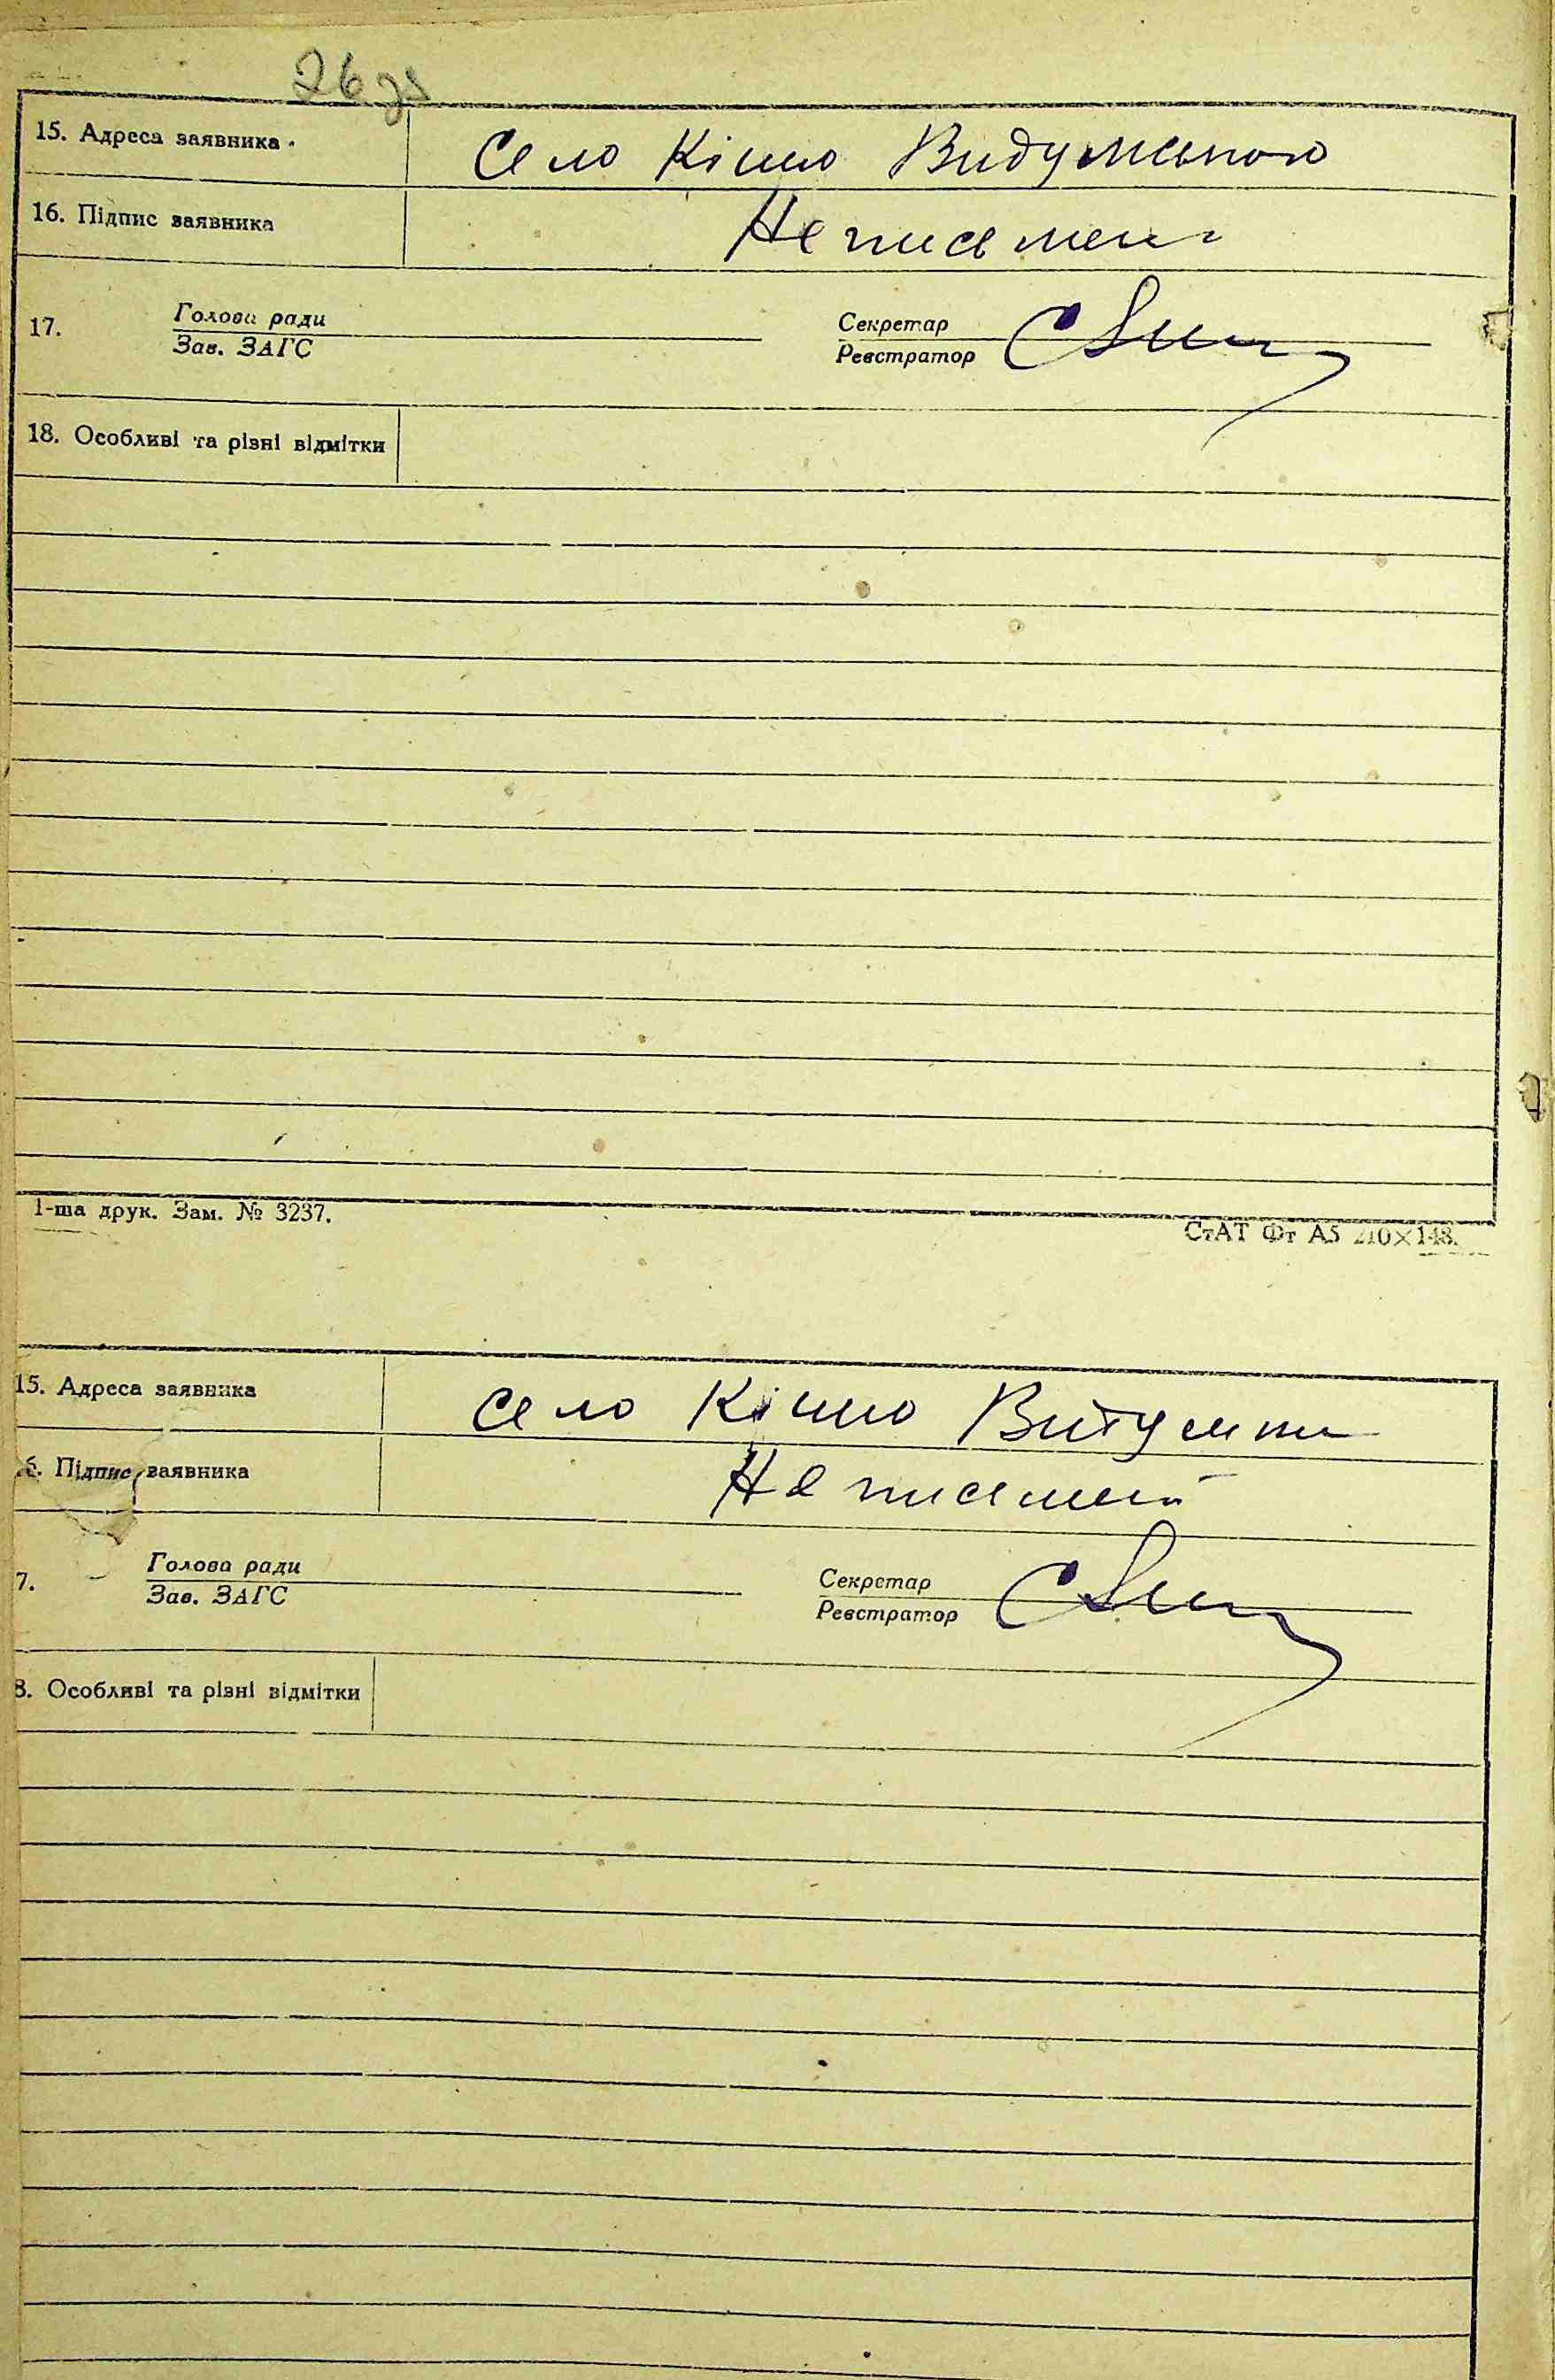 26
15. Адреса заявника
Село Кішло
16. Підпис заявника
Неписьмен
17.
Голова ради
Зав. ЗАГС
Секретар
Реєстратор
18. Особливі та різні відмітки
1-ша друк. Зам. № 3237.
СтАТ Фт А5 210×148.
15. Адреса заявника
Село Кішло
6. Підпис заявника
Неписмен
7.
Голова ради
Зав. ЗАГС
Секретар
Реєстратор
8. Особливі та різні відмітки